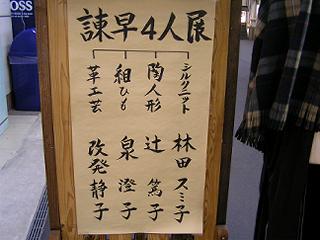 OSS
諫早4人展
シルクニット 林田スミ子
陶人形 辻篤子
組ひも 泉澄子
革工芸 改発静子